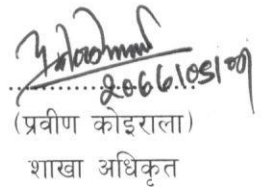 २०६६/०५/०१
(प्रवीण कोइराला)
शाखा अधिकृत